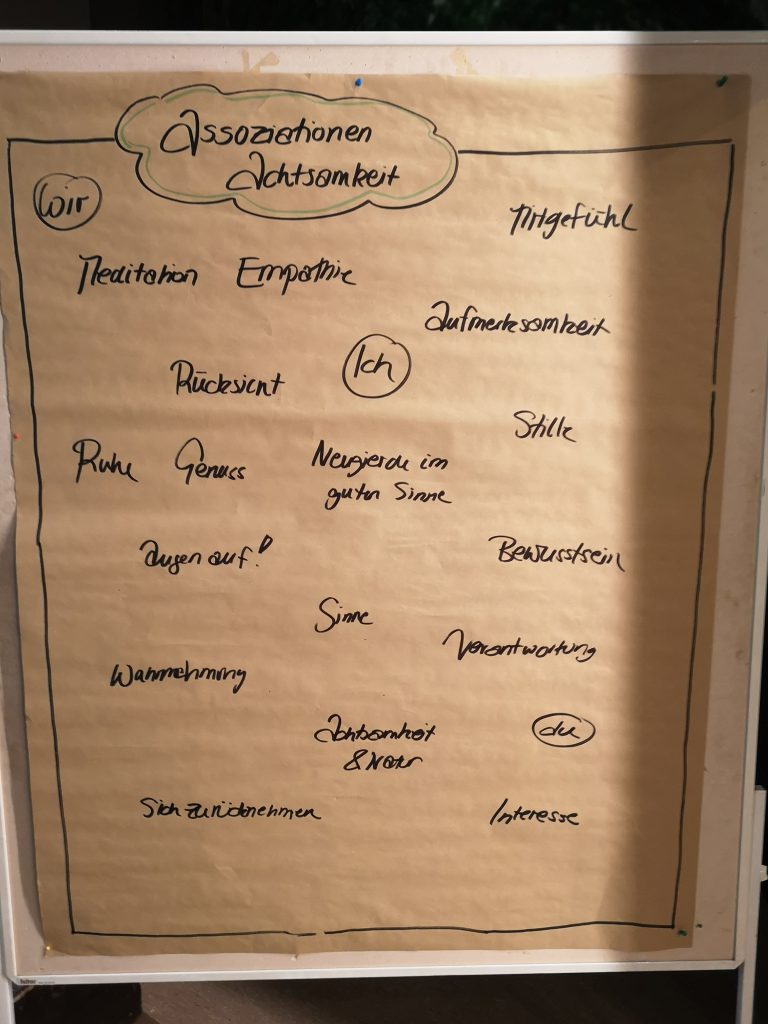 Assoziationen
Achtsamkeit
Wir
Mitgefühl
Meditation Empathie
Aufmerksamkeit
Ich
Rücksicht
Stille
Ruhe Genuss Neugierde im
guten Sinne
Augen auf!
Bewusstsein
Sinne
Verantwortung
Wahrnehmung
Achtsamkeit
& Natur
du
Sich zurücknehmen
Interesse